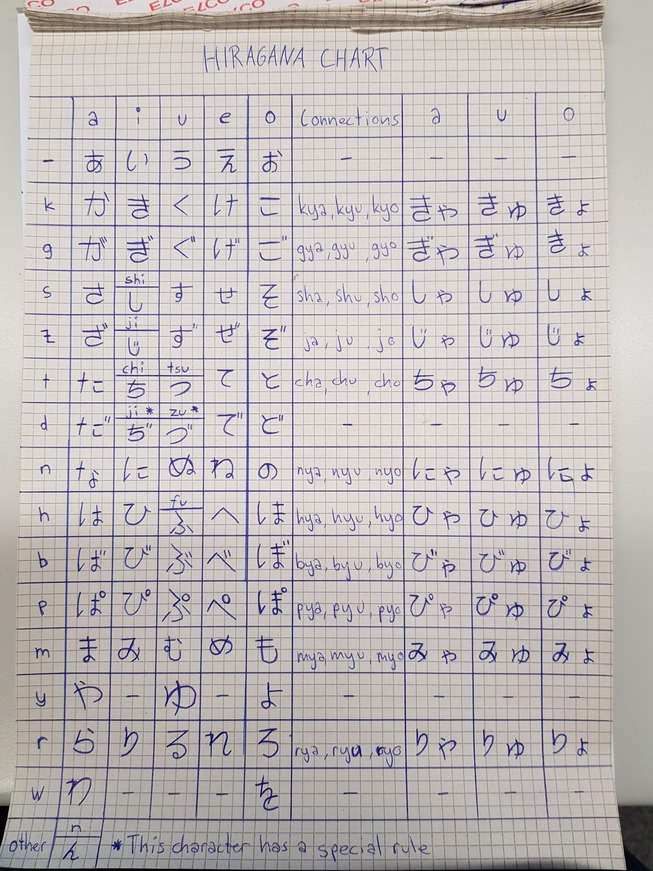 ELCO ELCO ELCO
HIRAGANA CHART
a i u e o Connections a u o
- あ い う え お - - - -
k か き く け こ kya, kyu, kyo きゃ きゅ きょ
g が ぎ ぐ げ ご gya, gyu, gyo ぎゃ ぎゅ きょ
s さ shi し す せ そ sha, shu, sho しゃ しゅ しょ
z ざ ji じ ず ぜ ぞ ja, ju jo じゃ じゅ じょ
t た chi ち tsu つ て と cha, chu, cho ちゃ ちゅ ちょ
d だ ji* ぢ zu* づ で ど - - - -
n な に ぬ ね の nya, nyu nyo にゃ にゅ にょ
h は ひ fu ふ へ ほ hya, hyu, hyo ひゃ ひゅ ひょ
b ば び ぶ べ ぼ bya, byu, byo びゃ びゅ びょ
p ぱ ぴ ぷ ぺ ぽ pya, pyu, pyo ぴゃ ぴゅ ぴょ
m ま み む め も mya, myu, myo みゃ みゅ みょ
y や - ゆ - よ - - - -
r ら り る れ ろ rya, ryu, ryo りゃ りゅ りょ
w わ - - - を - - - -
other n ん * This character has a special rule